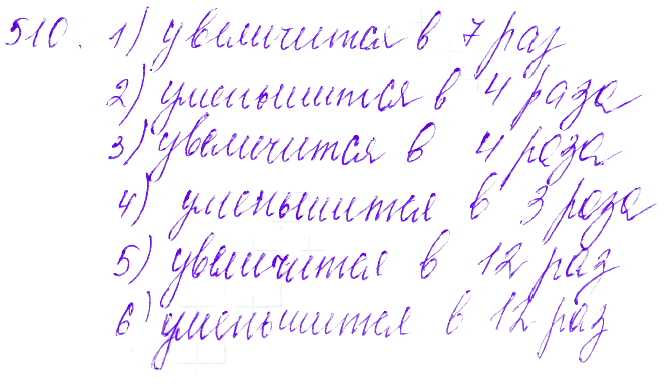 510. 1) увеличится в 7 раз
2) уменьшится в 4 раза
3) увеличится в 4 раза
4) уменьшится в 3 раза
5) увеличится в 12 раз
6) уменьшится в 12 раз